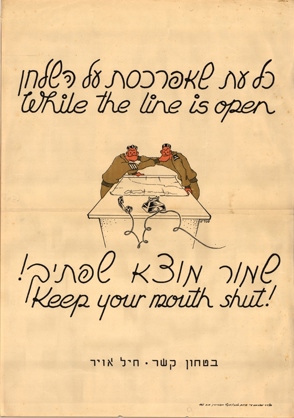 כל עת שאפרכסת על השלחן
While the line is open
שמור מוצא שפתיך!
Keep your mouth shut!
בטחון קשר • חיל אויר